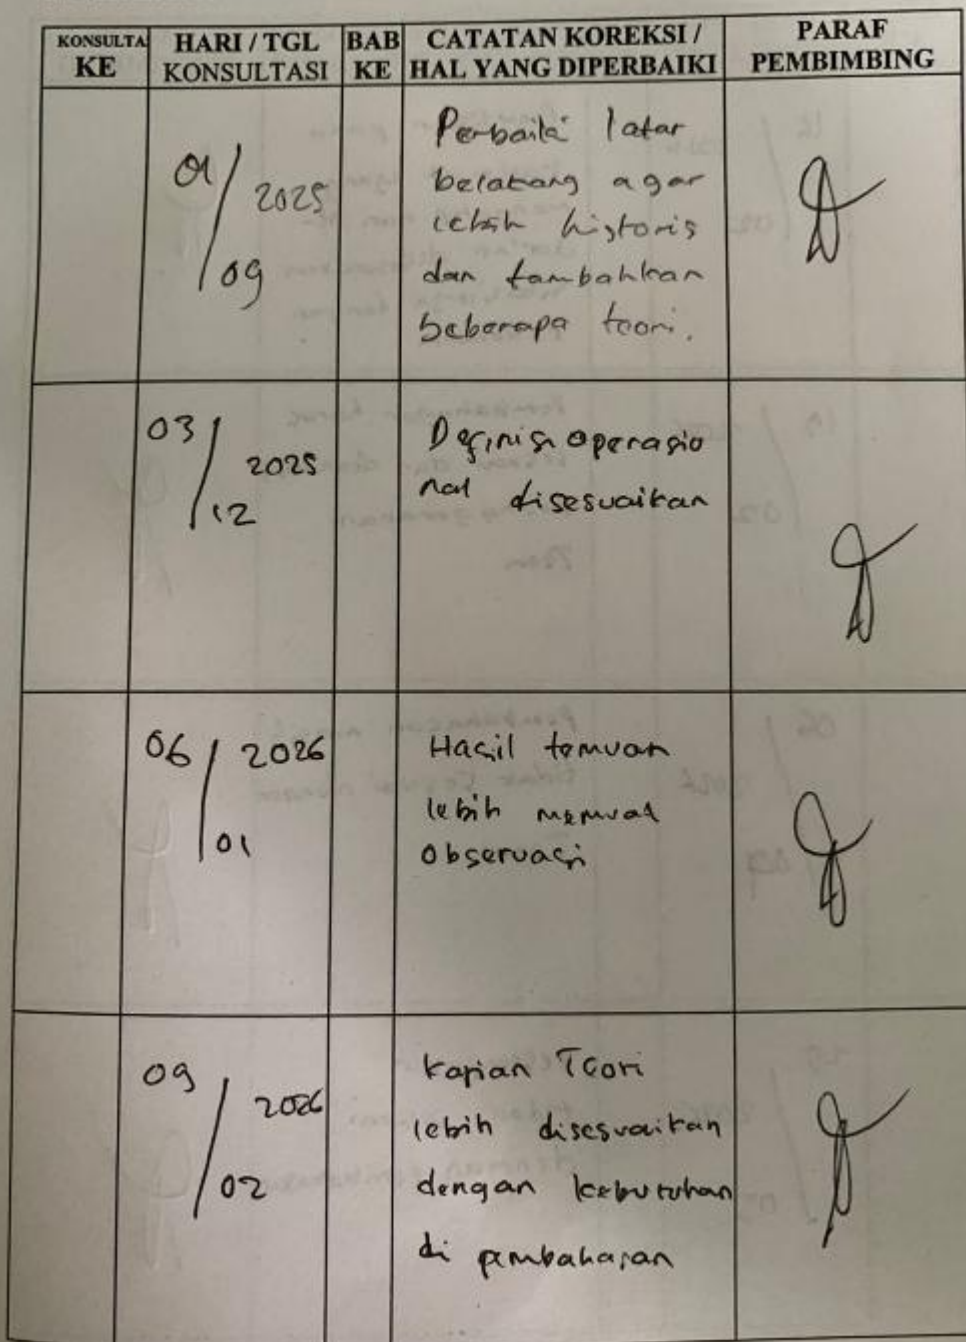 KONSULTA KE
HARI / TGL KONSULTASI
BAB KE
CATATAN KOREKSI / HAL YANG DIPERBAIKI
PARAF PEMBIMBING
01/09 2025
Perbaiki latar
belakang agar
lebih historis
dan tambahkan
beberapa teori.
03/12 2025
Definisi operasio
nal disesuaikan
06/01 2026
Hasil temuan
lebih memuat
observasi
09/02 2026
Kajian Teori
lebih disesuaikan
dengan kebutuhan
di pembahasan